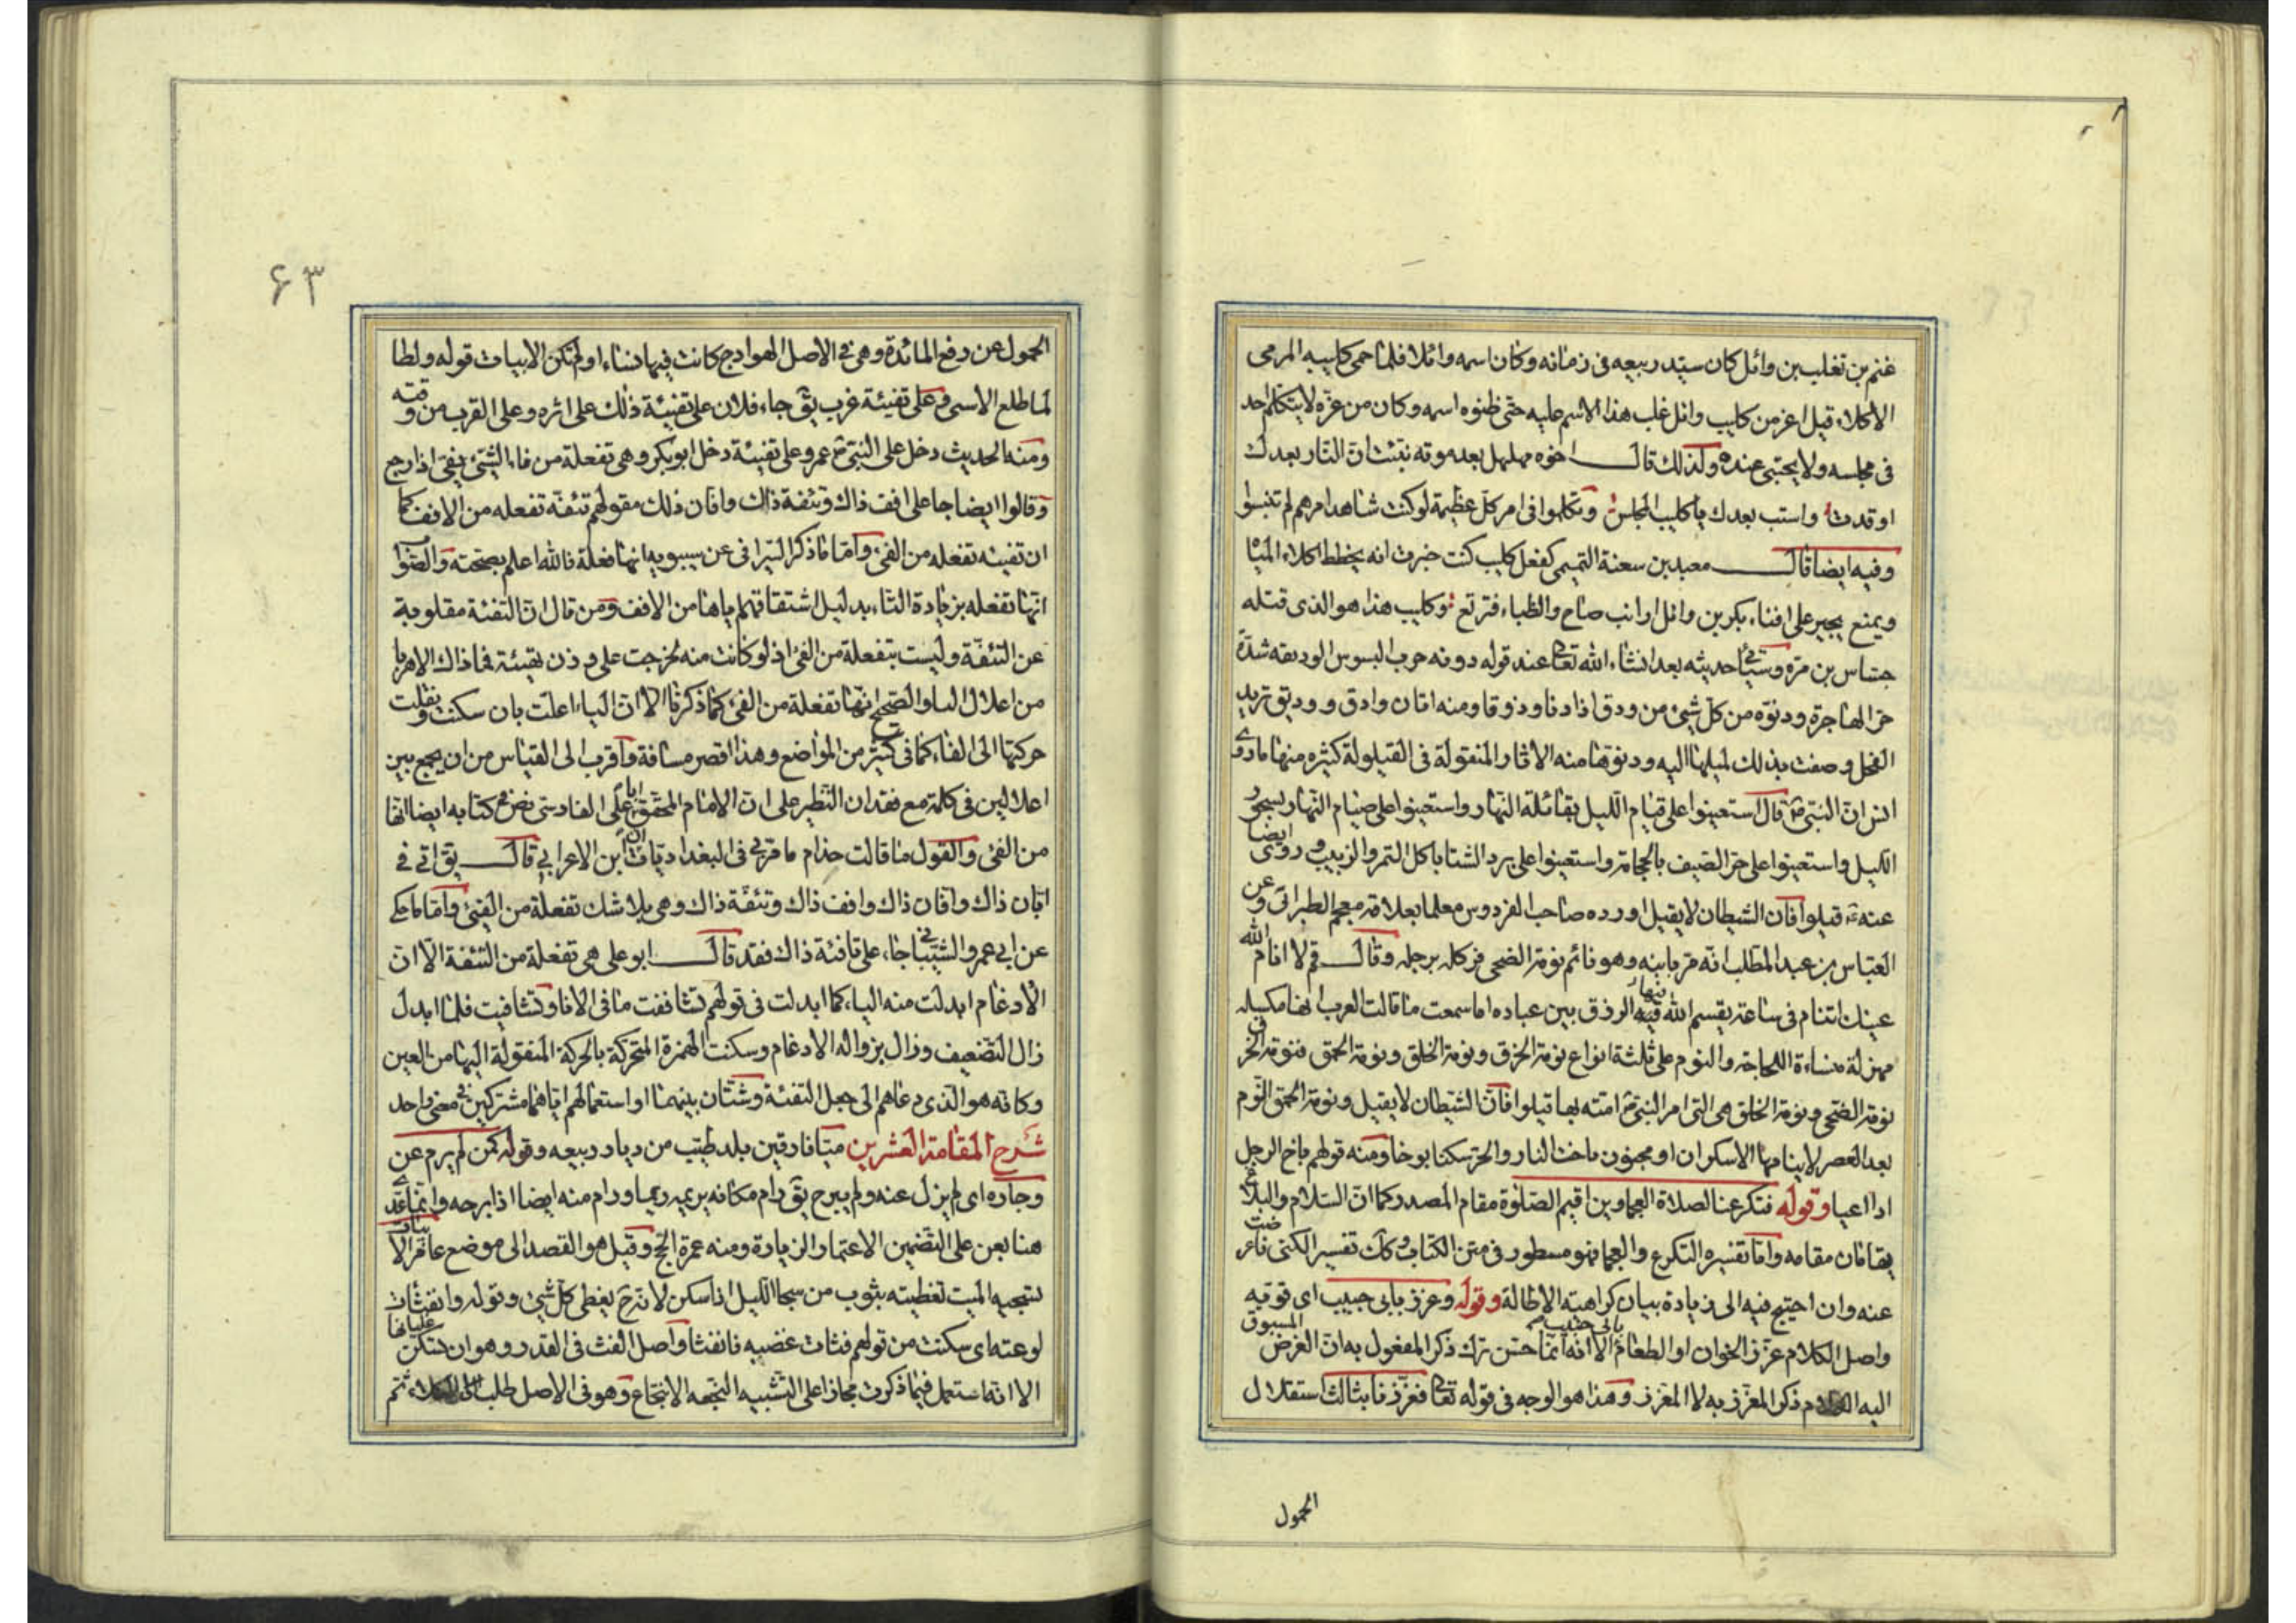 غنم بن تغلب بن وائل كان سيد ربيعه فى زمانه وكان اسمه وائلا فلما حمى كليبه المرمى
الاكلاء قيل اعز من كليب وائل غلب هذا الاسم عليه حتى ظنوه اسمه وكان من عزه لا يتكلم احد
فى مجلسه ولا يحتبى عنده ولذلك قال اخوه مهلهل بعد موته نبئت ان النار بعدك
اوقدت واستب بعدك يا كليب المجلس وتكلموا فى امر كل عظيمة لو كنت شاهد امرهم لم تنبسوا
وفيه ايضا قال معبد بن سعنة التميمى كفعل كليب كنت خبرت انه يخطط اكلاء المياه
ويمنع يجير على افناء بكر بن وائل ارانب ضاح والظباء فترتع وكليب هذا هو الذى قتله
جساس بن مرة وسيأتى حديثه بعد انشاء الله تعا عند قوله دونه حرب البسوس الوديقه شدة
حر الهاجرة ودنوه من كل شئ من ودق اذا دنا ودوقا ومنه اتان وادق ووديق تريد
الفحل وصفت بذلك لميلها اليه ودنوها منه الاثار المنقولة فى القيلولة كثيره منها ما روى
انس ان النبى ص قال استعينوا على قيام الليل بقائلة النهار واستعينوا على صيام النهار بسحور
الليل واستعينوا على حر الصيف بالحجامة واستعينوا على برد الشتا باكل التمر والزبيب وروى ايضا
عنه قيلوا فان الشيطان لا يقيل اورده صاحب الفردوس معلما بعلامة معجم الطبرانى وعن
العباس بن عبد المطلب انه مر بابنه وهو نائم نومة الضحى فركله برجله وقال قم لا انام الله
عينك اتنام فى ساعة يقسم الله فيها الرزق بين عباده اما سمعت ما قالت العرب انها مكسله
مهزلة منساءة للحاجة والنوم على ثلثة انواع نومة الخرق ونومة الخلق ونومة الحمق فنومة الخرق
نومة الضحى ونومة الخلق هى التى امر النبى امته بها قيلوا فان الشيطان لا يقيل ونومة الحمق النوم
بعد العصر لا ينامها الا سكران او مجنون باخت النار والحر سكنا بوخا ومنه قولهم باخ الرجل
اذا اعيا وقوله فتكرعنا لصلاة العجماوين اقيم الصلوة مقام المصدر كما ان السلام والبلاغ
يقامان مقامه واما تفسيره التكرع والعجما فهو مسطور فى متن الكتاب وكان تفسير الكنى
عنه وان احتيج فيه الى زيادة بيان كراهية الاطالة وقوله وعزز بابى حبيب اى قوّ به
واصل الكلام عزز الخوان او الطعام بابى حبيب الا انه انما حسن ترك ذكر المفعول به ان الغرض المسبوق
اليه الكلام ذكر المعزز به لا المعزز وهذا هو الوجه فى قوله تعا فعززنا بثالث استقلال
الحمول
۶۳
الحمول عن رفع المائدة وهى فى الاصل الهوادج كانت فيها نساء او لم تكن الابيات قوله ولطا
لما طلع الاسى وعلى تفيئة غرب يق جاء فلان على تفيئة ذلك على اثره وعلى القرب من وقته
ومنه الحديث دخل على النبى عمر وعلى تفيئة دخل ابو بكر وهى تفعلة من فاء الشئ يفئ اذا رجع
وقالوا ايضا جا على افف ذاك وتئفة ذاك وافان ذلك مقولهم تئفة تفعله من الافف كما
ان تفيئه تفعله من الفئ واما ما ذكر السيرافى عن سيبويه انها فعلة فالله اعلم بصحته والصواب
انها تفعله بزيادة التاء بدليل اشتقاقهم اياها من الافف ومن قال ان التفئة مقلوبة
عن التئفة وليست بتفعلة من الفئ اذ لو كانت منه لخرجت على وزن تهيئة فما ذاك الا هربا
من اعلال اليا والصحيح انها تفعلة من الفئ كما ذكرنا الا ان الياء اعلت بان سكنت ونقلت
حركتها الى الفاء كما فى كثير من المواضع وهذا اقصر مسافة واقرب الى القياس من ان يجمع بين
اعلالين فى كلمة مع فقدان النظير على ان الامام المحقق ابا على الفارسى نص فى كتابه ايضا انها
من الفئ والقول ما قالت حذام ما قرئ فى البغداديات ان ابن الاعرابى قال يق اتى فى
ابان ذاك وافان ذاك وافف ذاك وتئفة ذاك وهى بلا شك تفعلة من الفئ واما ما حكى
عن ابى عمرو الشيبانى جاء على تافئة ذاك فقد قال ابو على هى تفعلة من التئفة الا ان
الادغام ابدلت منه الياء كما ابدلت فى قولهم تشاففت ما فى الانا وتشافيت فلما ابدل
زال التضعيف وزال بزواله الادغام وسكنت الهمزة المتحركة بالحركة المنقولة اليها من العين
وكانه هو الذى دعاهم الى جعل التفئة وشتان بينهما او استعمالهم اياهما مشتركين فى معنى واحد
شرح المقامة العشرين ميافارقين بلد طيب من ديار ربيعه وقوله كمن لم يرم عن
وجاره اى لم يزل عنه ولم يبرح يق رام مكانه يريمه ريما ورام منه ايضا اذا برحه وانما عدى
هنا بعن على التضمين الاعتمار الزيارة ومنه عمرة الحج وقيل هو القصد الى موضع عامر
تسجيه الميت تغطيته بثوب من سجا الليل اذا سكن لانه ح يغطى كل شئ وقوله وانفثات
لوعته اى سكنت من قولهم فثات غضبه فانفثا واصل الفث فى القدر وهو ان تسكن غليانها
الا انه استعمل فيما ذكرت مجازا على التشبيه النجعه الانتجاع وهو فى الاصل طلب الكلاء ثم